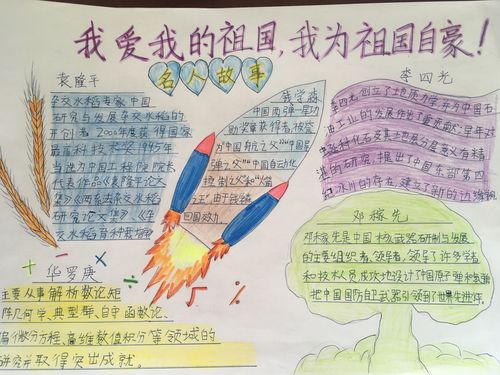 我爱我的祖国,我为祖国自豪!
名人故事
袁隆平
杂交水稻专家中国
研究与发展杂交水稻的
开创者2000年度获得国家
最高科技术奖1995年
当选为中国工程院院长
代表作品《袁隆平论文
集》《两系法杂交水稻
研究论文集》《杂
交水稻育种栽培学
钱学森
中国两弹一星功
勋奖章获得者,被誉
为"中国航天之父""中国导
弹之父""中国自动化
控制之父"和"火箭
之王"由于钱学森
回国效力
李四光
李四光创立了地质力学并为中国石
油工业的发展作出了重要贡献;早年对
化石
的研究,提出了中国东部第四
纪冰川的存在,建立了新的边缘
邓稼先
邓稼先是中国核武器研制与发展
的主要组织者,领导者,领导了许多学者
和技术人员成功地设计了中国原子弹和氢弹
把中国国防自卫武器引领到了世界先进水平.
华罗庚
主要从事解析数论矩
阵几何学、典型群、自守函数论、
偏微分方程、高维数值积分等领域的
研究并取得突出成就。